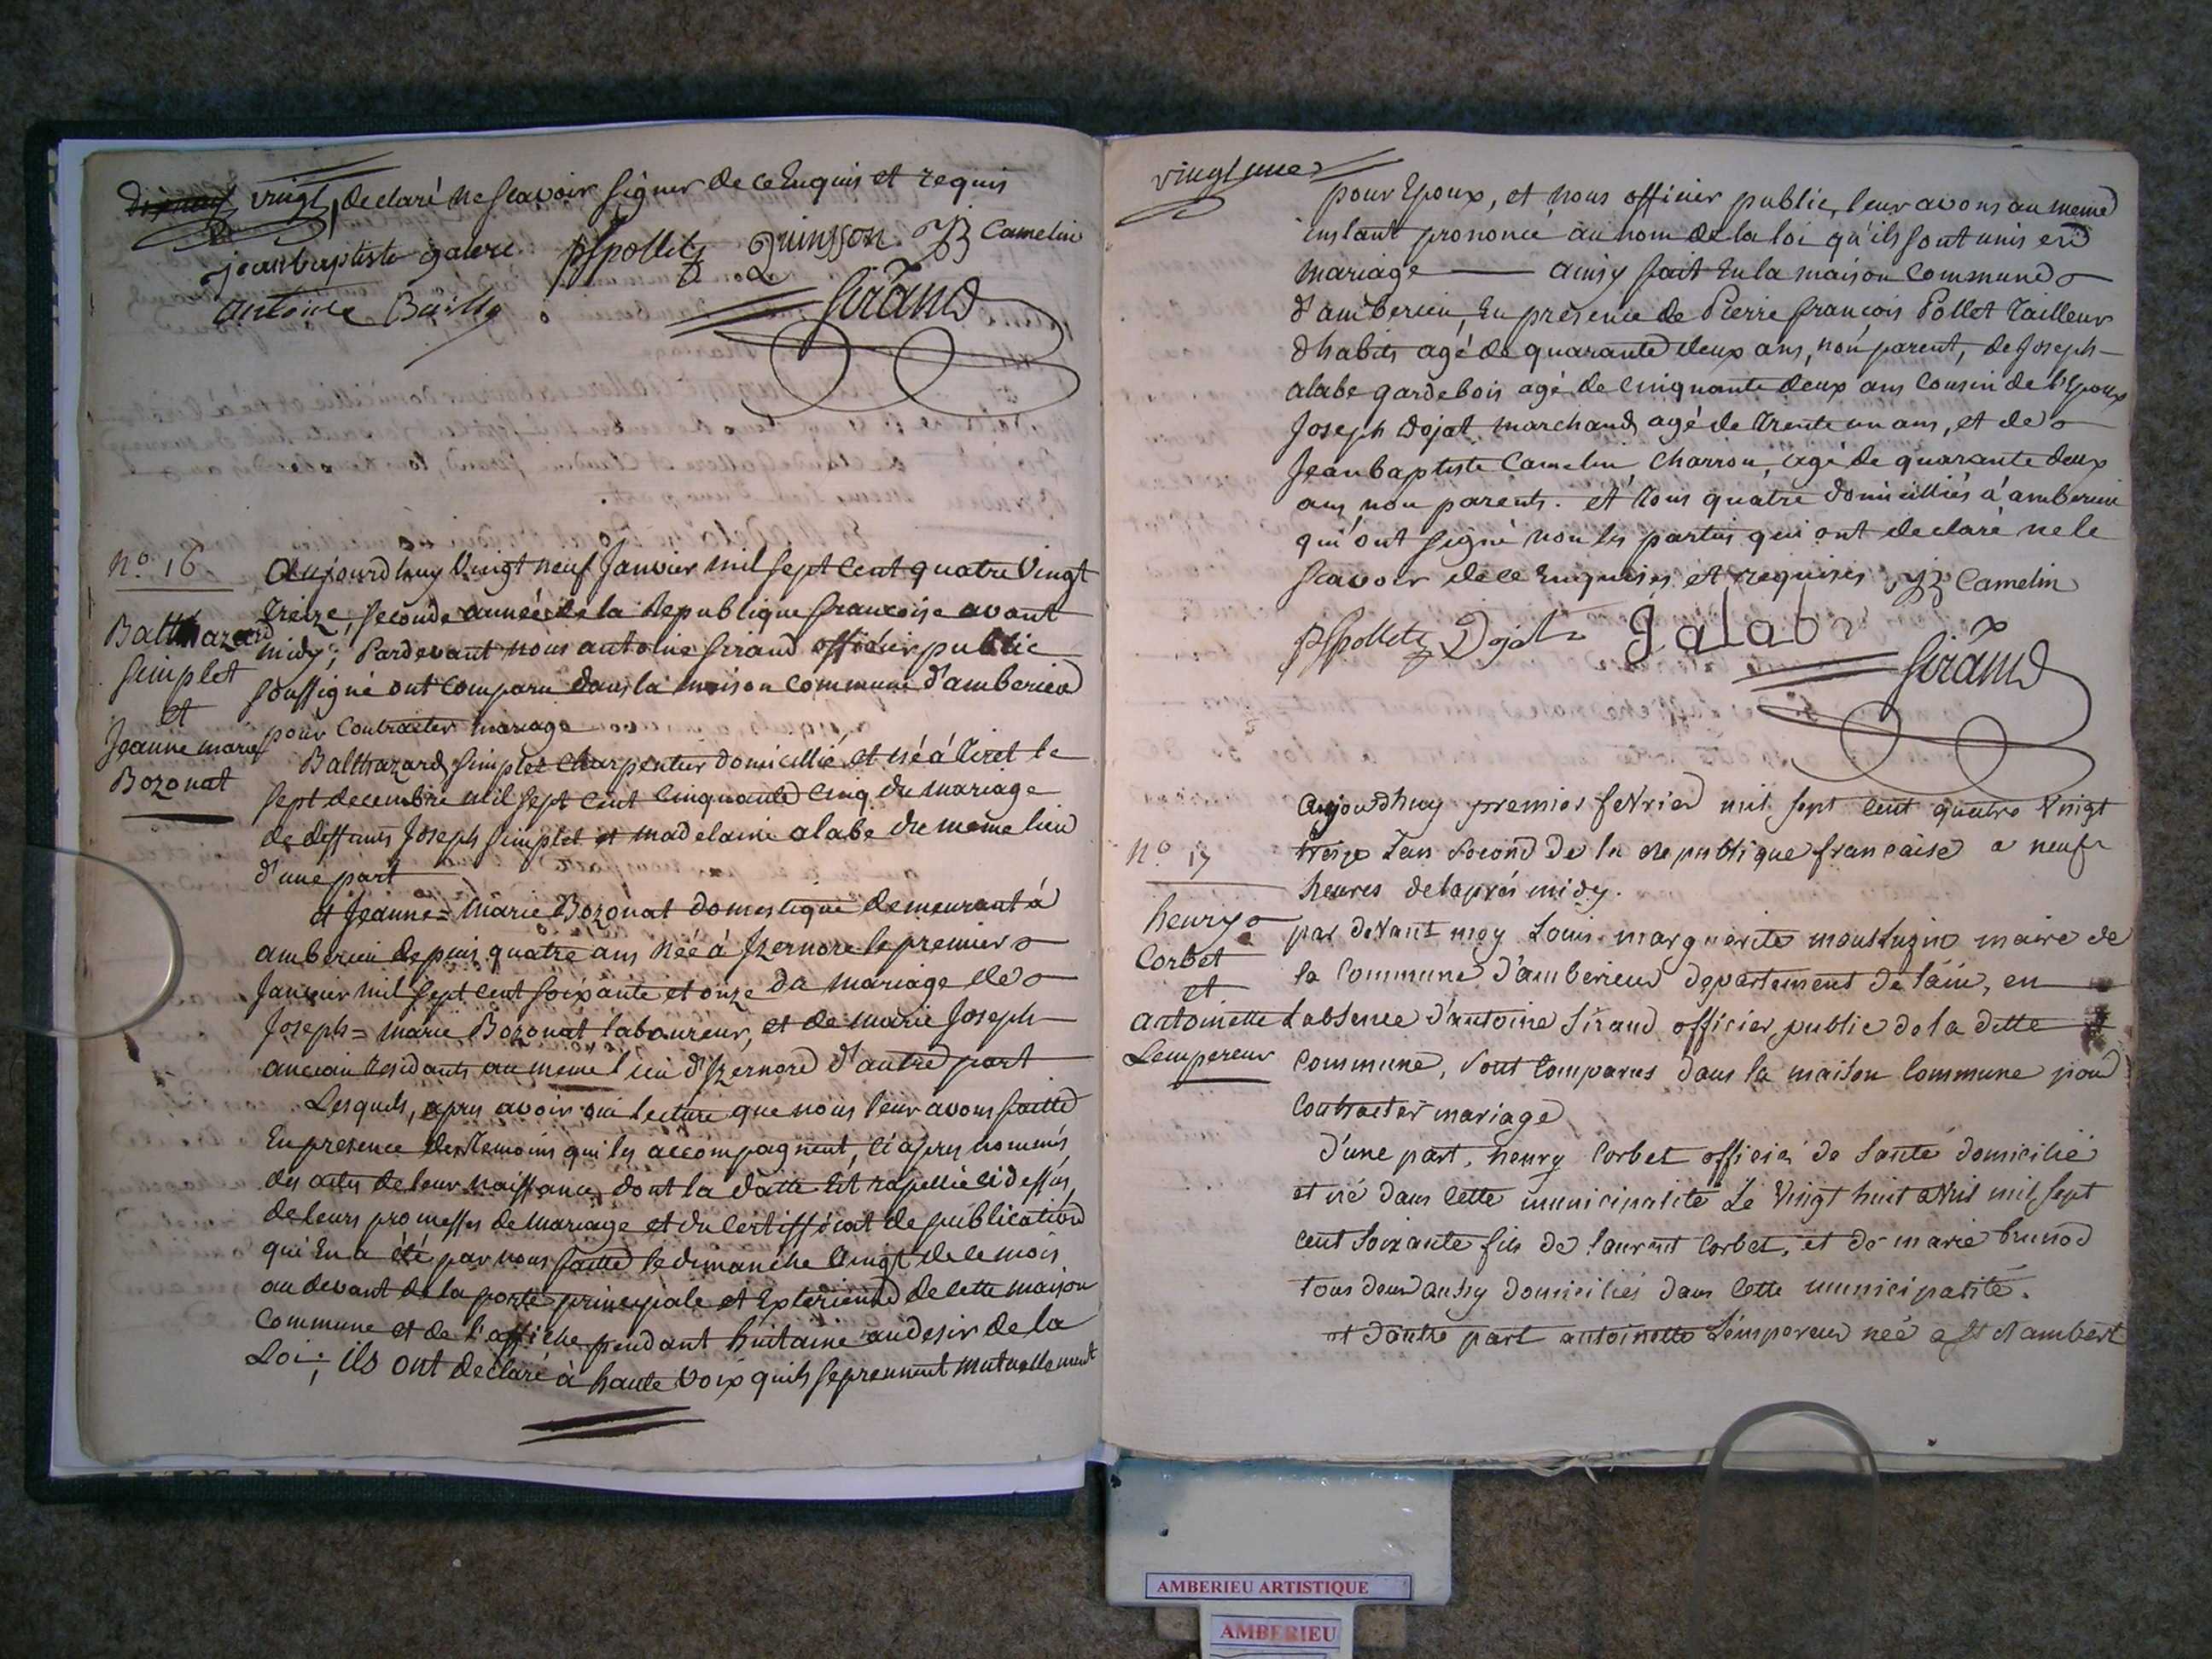 vingt declaré ne scavoir signer de ce enquis et requis
jean baptiste galere pfpollet quinsson JB Camelin
antoine Bailly Sirand
N.º 16
Balthazard
Simplet
et
Jeanne marie
Bozonat
Aujourdhuy vingt neuf Janvier mil sept cent quatre vingt
treize, seconde année de la Republique francoise avant
midy; Pardevant nous antoine Sirand officier public
soussigné ont comparu dans la maison commune d'amberieu
pour contracter mariage
Balthazard Simplet charpentier domicillié et né à tiret le
sept decembre mil sept cent cinquante cinq du mariage
de deffunts Joseph Simplet et madelaine alabe du meme lieu
d'une part
et Jeanne=Marie Bozonat domestique demeurant à
amberieu depuis quatre ans née à Izernore le premier
Janvier mil sept cent soixante et onze du mariage de
Joseph=marie Bozonat laboureur, et de marie Joseph
ancian residants au meme lieu d'Izernore d'autre part
Lesquels, apres avoir oui lecture que nous leur avons faitte
En presence des temoins qui les accompagnent, ci apres nommés,
des actes de leur naissance, dont la datte est rapellée ci dessus,
de leurs promesses de mariage et du certifficat de publication
qui En a été par nous faitte le dimanche vingt de ce mois
au devant de la porte principale et Exterieure de cette maison
Commune et de l'affiche pendant huitaine au desir de la
Loi; ils ont declaré à haute voix qu'ils se prennent mutuellement
vingt une
pour Epoux, et nous officier public, leur avons au meme
instant prononcé au nom de la loi qu'ils sont unis en
mariage ainsy fait En la maison commune
d'amberieu, En présence de Pierre françois Pollet Tailleur
dhabits agé de quarante deux ans, non parent, de Joseph
alabe gardebois agé de cinquante deux ans cousin de l'Epoux
Joseph Dojat marchand agé de trente un ans, et de
Jean baptiste Camelin charron agé de quarante deux
ans non parents. et tous quatre domicilliés à amberieu
qui ont signé non les parties qui ont declaré ne le
scavoir de ce Enquises et requises JB Camelin
pfpollet Dojat Jalabe
Sirand
Aujourdhuy premier fevrier mil sept cent quatre vingt
treize Lan second de la republique francaise a neuf
heures de laprés midy.
N.º 17
henry
Corbet
et
antoinette
Lempereur
par devant moy Louis marguerite maire de
la Commune d'amberieu departement de lain, en
Labsence d'antoine Sirand officier public de la ditte
commune, sont comparus dans la maison commune pour
contracter mariage
d'une part, henry Corbet officié de santé domicilié
et né dans cette municipalité Le vingt huit avril mil sept
cent soixante fils de laurent Corbet, et de marie brunod
tous deux aussy domiciliés dans cette municipalité.
et dautre part antoinette Lempereur née a st Rambert
AMBERIEU ARTISTIQUE
AMBERIEU